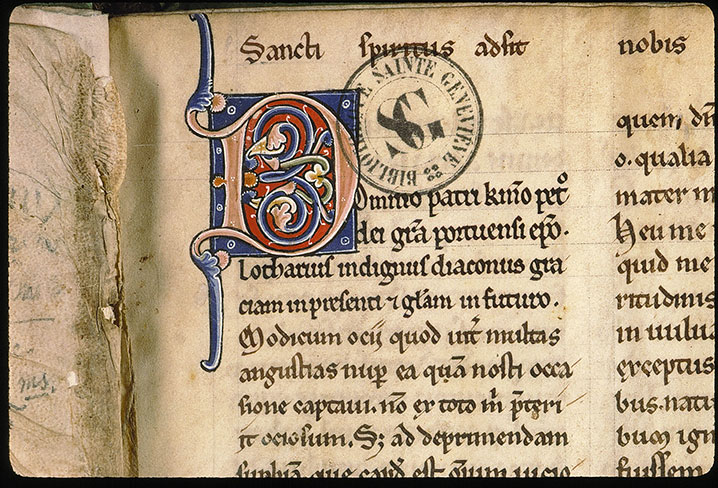 Sancti spiritus adsit nobis
BIBLIOTHEQUE SAINTE GENEVIEVE
SG
Domino patri kmo petro
dei gra portuensi epo.
Lotharius indignus diaconus gra
ciam in presenti ⁊ głam in futuro.
Modicum ocii quod int multas
angustias nup ea quā nosti occa
sione captaui. nō ex toto m̄ pteri
it ociosum. S; ad deprimendam
supbiā que capd est
quem dn̄
o. qualia
mater m
Heu me
quid me
ritudinis
in uulua
exceptus
bus. natu
bum ign
fuissem